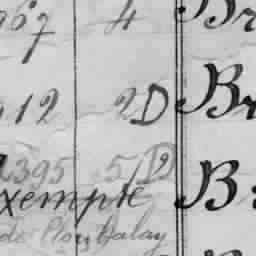 967 4 Br
912 2D Br
2395 5/D2
xempté Br
de Plou balay